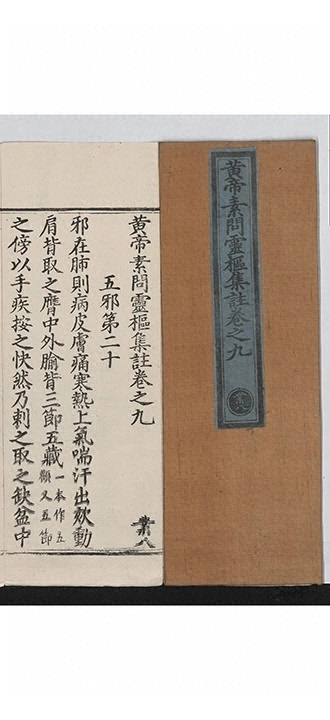 黄帝素問靈樞集註卷之九
黄帝素問靈樞集註卷之九
業八
五邪第二十
邪在肺則病皮膚痛寒熱上氣喘汗出欬動
肩背取之膺中外腧背三節五藏一本作五顀又五節
之傍以手疾按之快然乃刺之取之缺盆中